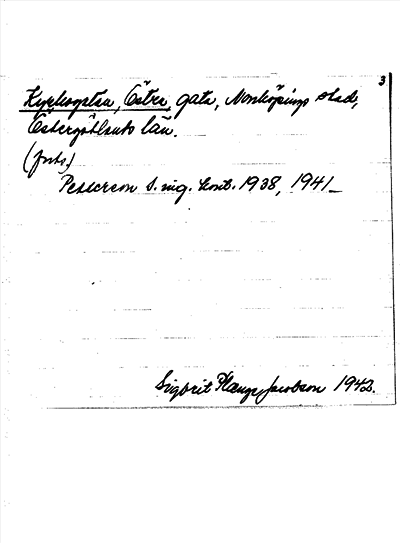 3
Kyrkogatan, Östra, gata, Norrköpings stad,
Östergötlands län.
(forts.)
Petterson S. ing. kont. 1938, 1941_
Sigbrit Plænge Jacobson 1942.